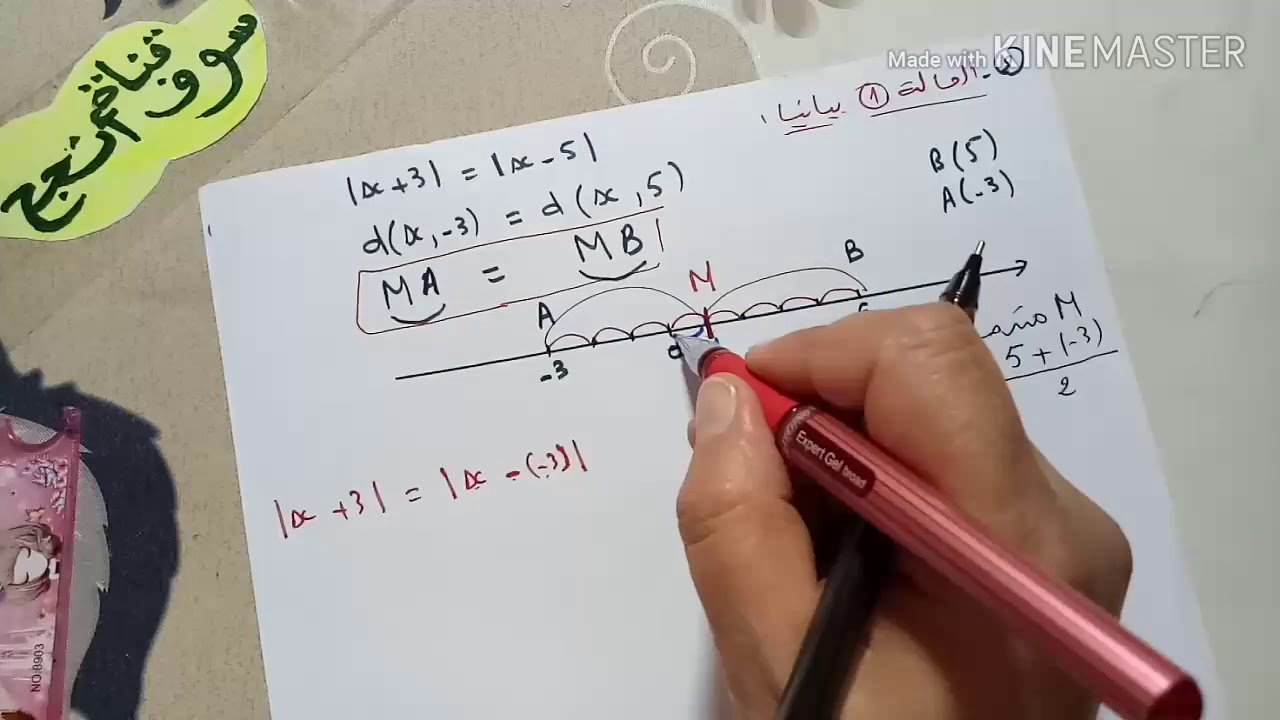 Made with KINEMASTER
سوف تبناضم أنجح
② - الحالة ① بيانيا،
|x + 3| = |x - 5|
d(x, -3) = d(x, 5)
MA = MB
B(5)
A(-3)
A M B
-3
M
5 + (-3)
2
|x + 3| = |x - (-3)|
Expert Gel broad
NO:8903